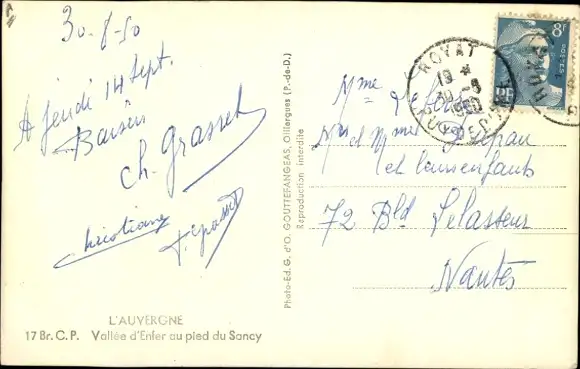 30-8-50
A jeudi 14 Sept.
Baisers
Ch. Grasset
Christiane
Grasset
L'AUVERGNE
17 Br. C. P. Vallée d'Enfer au pied du Sancy
Photo-Ed. G. d'O. GOUTTEFANGEAS, Olliergues (P.-de-D.)
Reproduction interdite
ROYAT
19
30 -8
1950
8F
POSTES
Mme
Mr et Mme
et leurs enfants
72 Bld Pelasteur
Nantes